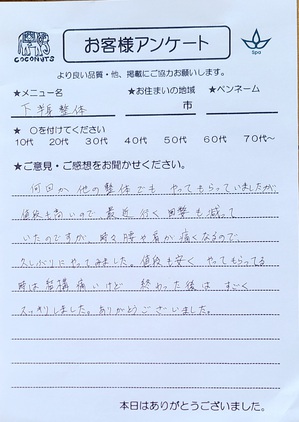 COCONUTS
お客様アンケート
Spa
より良い品質・他、掲載にご協力お願いします。
★メニュー名 ★お住まいの地域 ★ペンネーム
下半身整体 市
★ ○を付けてください
10代 20代 30代 40代 50代 60代 70代～
★ご意見・ご感想をお聞かせください。
何回か他の整体でも やってもらっていましたが
値段も高いので、最近 行く回数も減って
いたのですが、時々腰や肩が痛くなるので
久しぶりにやってみました。値段も安く やってもらってる
時は結構痛いけど 終わった後は すごく
スッキリしました。ありがとうございました。
本日はありがとうございました。